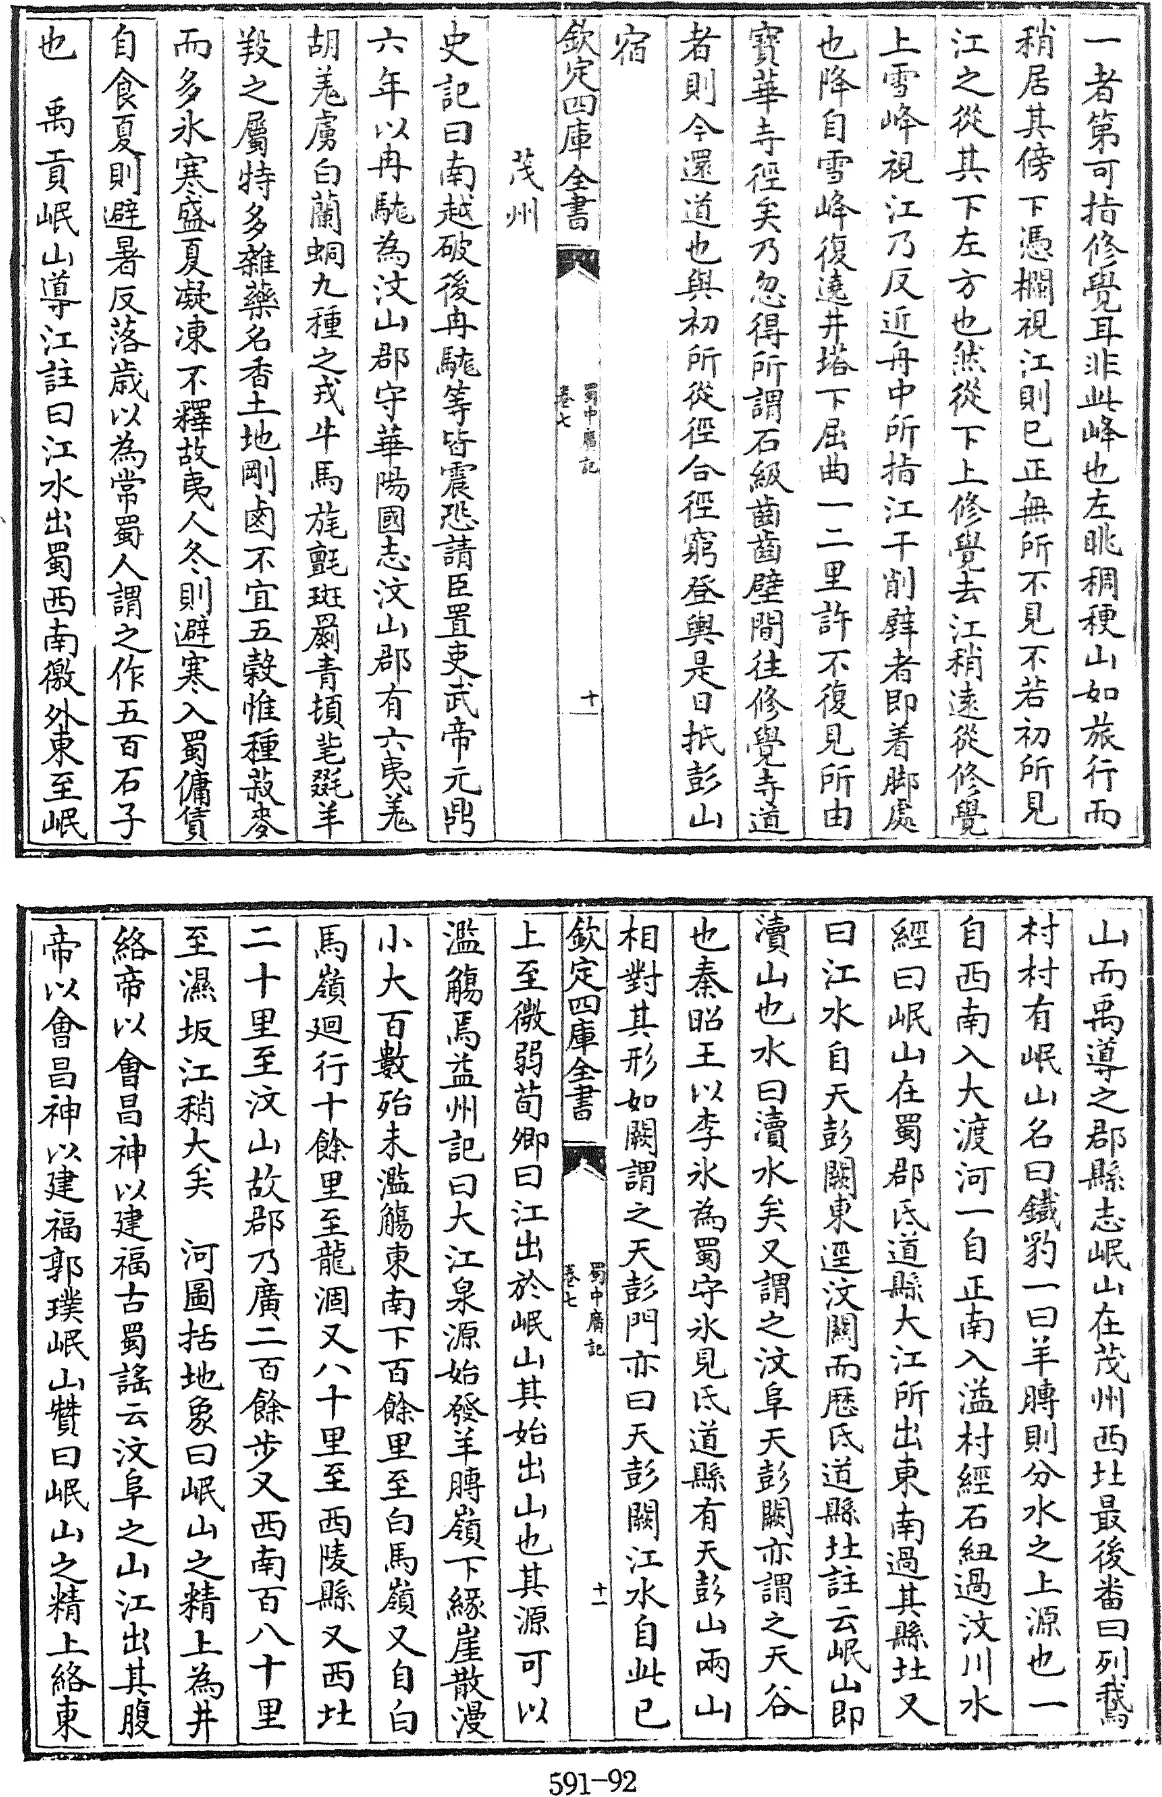 一者第可指修覺耳非此峰也左眺稠稉山如旅行而
稍居其傍下憑欄視江則已正無所不見不若初所見
江之從其下左方也然從下上修覺去江稍遠從修覺
上雪峰視江乃反近舟中所指江干削壁者即着脚處
也降自雪峰復遶井塔下屈曲一二里許不復見所由
寶華寺徑矣乃忽得所謂石級齒齒壁間往修覺寺道
者則今還道也與初所從徑合徑窮登輿是日抵彭山
宿
欽定四庫全書
蜀中廣記
卷七
十
茂州
史記曰南越破後冉駹等皆震恐請臣置吏武帝元鼎
六年以冉駹為汶山郡守華陽國志汶山郡有六夷羗
胡羗虜白蘭蜪九種之戎牛馬旄氈斑罽青頓毞毲羊
羖之屬特多雜藥名香土地剛鹵不宜五穀惟種菽麥
而多氷寒盛夏凝凍不釋故夷人冬則避寒入蜀傭賃
自食夏則避暑反落歲以為常蜀人謂之作五百石子
也　禹貢岷山導江註曰江水出蜀西南徼外東至岷
山而禹導之郡縣志岷山在茂州西北最後番曰列鵞
村村有岷山名曰鐵豹一曰羊膊則分水之上源也一
自西南入大渡河一自正南入溢村經石紐過汶川水
經曰岷山在蜀郡氐道縣大江所出東南過其縣北又
曰江水自天彭闕東逕汶關而歷氐道縣北註云岷山即
瀆山也水曰瀆水矣又謂之汶阜天彭闕亦謂之天谷
也秦昭王以李氷為蜀守氷見氐道縣有天彭山兩山
相對其形如闕謂之天彭門亦曰天彭闕江水自此已
欽定四庫全書
蜀中廣記
卷七
十一
上至微弱荀卿曰江出於岷山其始出山也其源可以
濫觴焉益州記曰大江泉源始發羊膊嶺下緣崖散漫
小大百數殆未濫觴東南下百餘里至白馬嶺又自白
馬嶺廻行十餘里至龍涸又八十里至西陵縣又西北
二十里至汶山故郡乃廣二百餘步又西南百八十里
至濕坂江稍大矣　河圖括地象曰岷山之精上為井
絡帝以會昌神以建福古蜀謠云汶阜之山江出其腹
帝以會昌神以建福郭璞岷山贊曰岷山之精上絡東
591-92